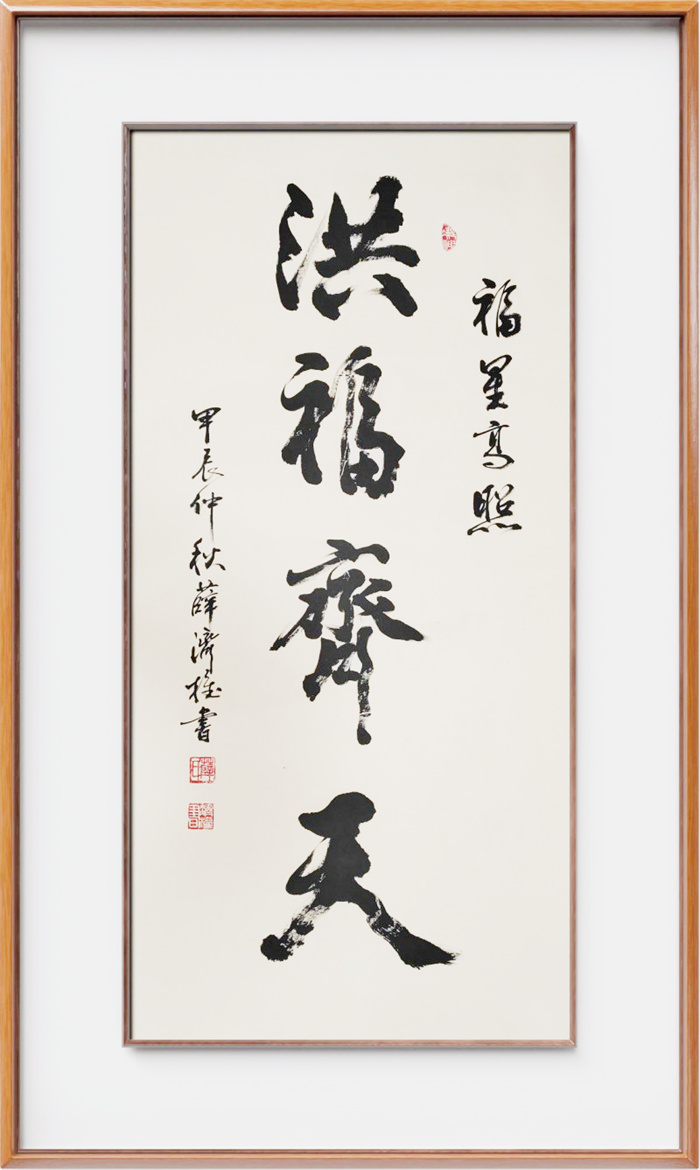 福星高照
洪福齊天
甲辰仲秋薛濟書